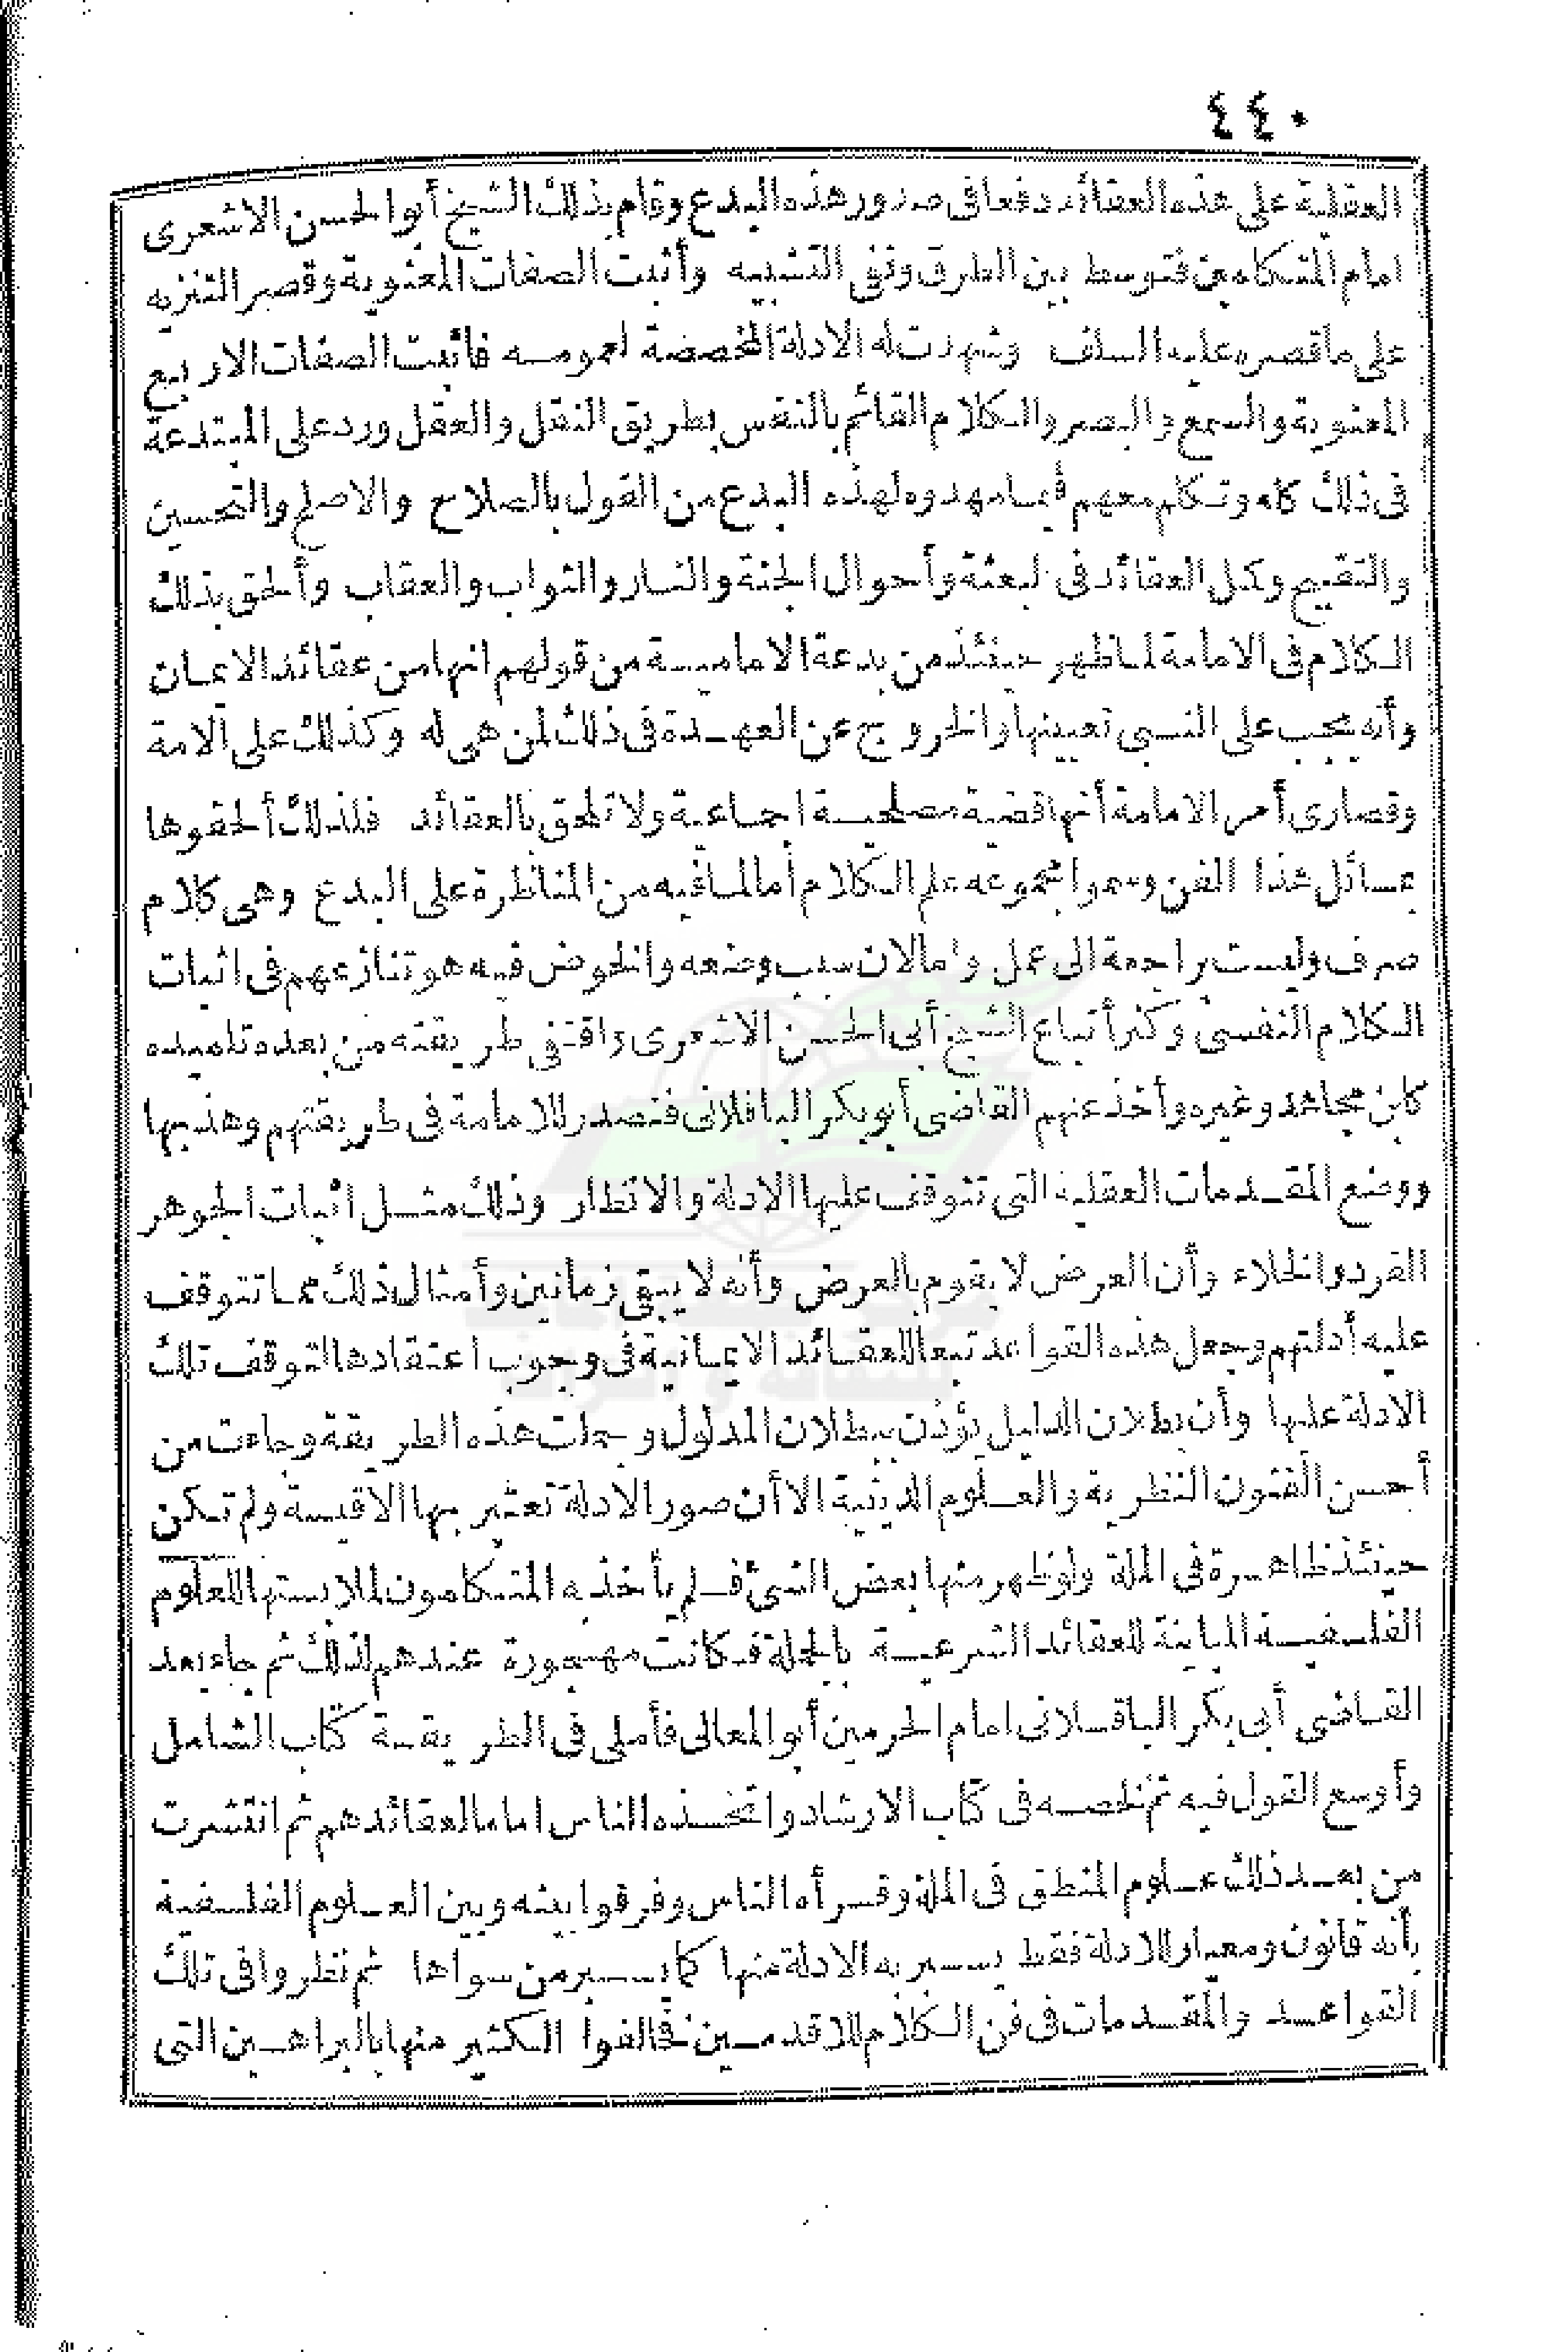 ٤٤٠
العقلية على هذه العقائد دفعا فى صدور هذه البدع وقام بذلك الشيخ أبو الحسن الاشعرى
امام المتكلمين فتوسط بين الطرق ونفى التشبيه وأثبت الصفات المعنوية وقصر التنزيه
على ما قصره عليه السلف وشهدت له الادلة المخصصة لعمومه فأثبت الصفات الاربع
المعنوية والسمع والبصر والكلام القائم بالنفس بطريق النقل والعقل ورد على المبتدعة
فى ذلك كله وتكلم معهم فيما مهدوه لهذه البدع من القول بالصلاح والاصلح والتحسين
والتقبيح وكمل العقائد فى البعثة وأحوال الجنة والنار والثواب والعقاب وألحق بذلك
الكلام فى الامامة لما ظهر حينئذ من بدعة الامامية من قولهم انها من عقائد الايمان
وأنه يجب على النبى تعيينها والخروج عن العهدة فى ذلك لمن هى له وكذلك على الامة
وقصارى أمر الامامة أنها قضية مصلحية اجماعية ولا تلحق بالعقائد فلذلك ألحقوها
بمسائل هذا الفن وسموا مجموعه علم الكلام أما لما فيه من المناظرة على البدع وهى كلام
صرف وليست براجعة الى عمل واما لان سبب وضعه والخوض فيه هو تنازعهم فى اثبات
الكلام النفسى وكثر أتباع الشيخ أبى الحسن الاشعرى واقتفى طريقته من بعده تلميذه
كابن مجاهد وغيره وأخذ عنهم القاضى أبو بكر الباقلانى فتصدر للامامة فى طريقتهم وهذبها
ووضع المقدمات العقلية التى تتوقف عليها الادلة والانظار وذلك مثل اثبات الجوهر
الفرد والخلاء وأن العرض لا يقوم بالعرض وأنه لا يبقى زمانين وأمثال ذلك مما تتوقف
عليه أدلتهم وجعل هذه القواعد تبعا للعقائد الايمانية فى وجوب اعتقادها لتوقف تلك
الادلة عليها وأن بطلان الدليل يؤذن ببطلان المدلول وجملت هذه الطريقة وجاءت من
أحسن الفنون النظرية والعلوم الدينية الا أن صور الادلة تعتبر بها الاقيسة ولم تكن
حينئذ ظاهرة فى الملة ولو ظهر منها بعض الشئ فلم يأخذ به المتكلمون لملابستها للعلوم
الفلسفية المباينة للعقائد الشرعية بالجملة فكانت مهجورة عندهم لذلك ثم جاء بعد
القاضى أبى بكر الباقلانى امام الحرمين أبو المعالى فأملى فى الطريقة كتاب الشامل
وأوسع القول فيه ثم لخصه فى كتاب الارشاد واتخذه الناس اماما لعقائدهم ثم انتشرت
من بعد ذلك علوم المنطق فى الملة وقرأه الناس وفرقوا بينه وبين العلوم الفلسفية
بأنه قانون ومعيار للادلة فقط يسبر به الادلة منها كما يسبر من سواها ثم نظروا فى تلك
القواعد والمقدمات فى فن الكلام للاقدمين فخالفوا الكثير منها بالبراهين التى